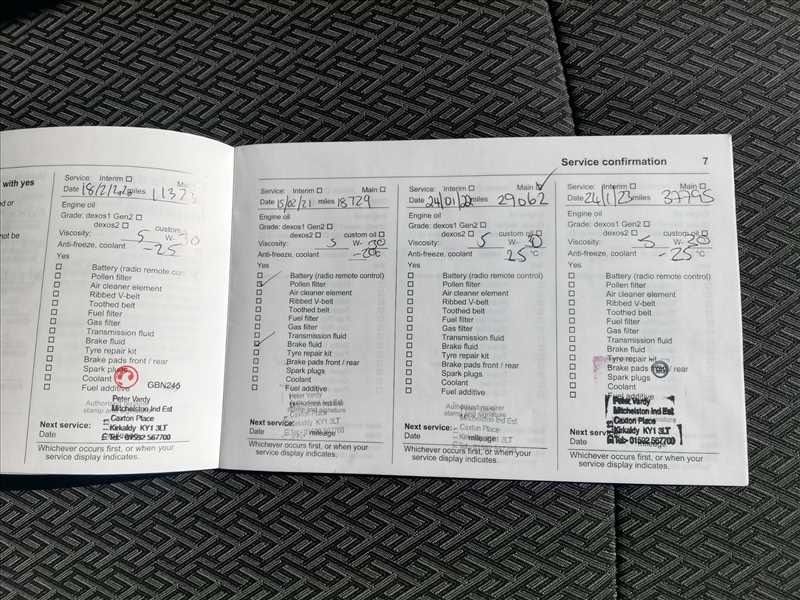 with yes
d or
not be
Service: Interim Main
Date 18/2/2020 miles
Engine oil
Grade: dexos1 Gen2
dexos2 custom
Viscosity: 5 W- 30
Anti-freeze, coolant -25
Yes
Battery (radio remote con
Pollen filter
Air cleaner element
Ribbed V-belt
Toothed belt
Fuel filter
Gas filter
Transmission fluid
Brake fluid
Tyre repair kit
Brake pads front / rear
Spark plugs
Coolant
Fuel additive
GBN246
Peter Vardy
Mitchelston Ind Est
Caxton Place
Kirkaldy KY1 3LT
Tel:- 01592 567700
Next service:
Date
Whichever occurs first, or when your
service display indicates.
Service confirmation 7
Service: Interim Main
Date 15/02/21 miles 18729
Engine oil
Grade: dexos1 Gen2
dexos2 custom oil
Viscosity: 5 W- 30
Anti-freeze, coolant °C
Yes
Battery (radio remote control)
Pollen filter
Air cleaner element
Ribbed V-belt
Toothed belt
Fuel filter
Gas filter
Transmission fluid
Brake fluid
Tyre repair kit
Brake pads front / rear
Spark plugs
Coolant
Fuel additive
Next service:
Date mileage
Whichever occurs first, or when your
service display indicates.
Service: Interim Main
Date 24/01/22 miles 29062
Engine oil
Grade: dexos1 Gen2
dexos2 custom oil
Viscosity: 5 W- 30
Anti-freeze, coolant 25 °C
Yes
Battery (radio remote control)
Pollen filter
Air cleaner element
Ribbed V-belt
Toothed belt
Fuel filter
Gas filter
Transmission fluid
Brake fluid
Tyre repair kit
Brake pads front / rear
Spark plugs
Coolant
Fuel additive
Caxton Place
Kirkaldy KY1 3LT
Next service:
Date mileage
Whichever occurs first, or when your
service display indicates.
Service: Interim Main
Date 24/1/23 miles 37795
Engine oil
Grade: dexos1 Gen2
dexos2 custom oil
Viscosity: 5 W- 30
Anti-freeze, coolant -25 °C
Yes
Battery (radio remote control)
Pollen filter
Air cleaner element
Ribbed V-belt
Toothed belt
Fuel filter
Gas filter
Transmission fluid
Brake fluid
Tyre repair kit
Brake pads rear
Spark plugs
Coolant
Fuel additive
Peter Vardy
Mitchelston Ind Est
Caxton Place
Kirkaldy KY1 3LT
Tel:- 01592 567700
Next service:
Date mileage
Whichever occurs first, or when your
service display indicates.